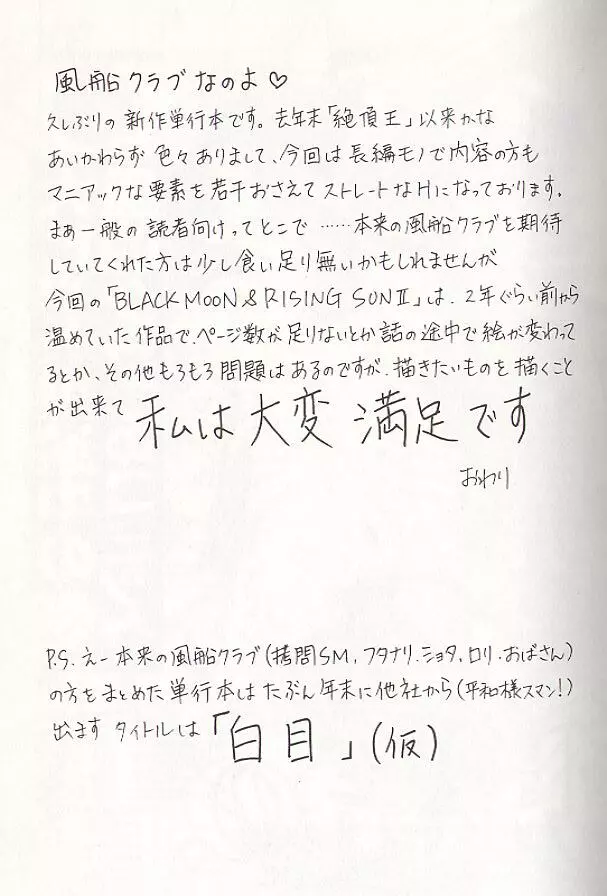 風船クラブなのよ♡
久しぶりの新作単行本です。去年末「絶頂王」以来かな
あいかわらず色々ありまして、今回は長編モノで内容の方も
マニアックな要素を若干おさえてストレートなHになっております。
まぁ一般の読者向けってとこで……本来の風船クラブを期待
していてくれた方は少し食い足り無いかもしれませんが
今回の「BLACK MOON & RISING SUN II」は、2年ぐらい前から
温めていた作品で、ページ数が足りないとか話の途中で絵が変わって
るとか、その他もろもろ問題はあるのですが、描きたいものを描くこと
が出来て 私は大変満足です
おわり
P.S. えー本来の風船クラブ(拷問SM,フタナリ.ショタ,ロリ.おばさん)
の方をまとめた単行本はたぶん年末に他社から(平和様スマン!)
出ます タイトルは「白目」(仮)